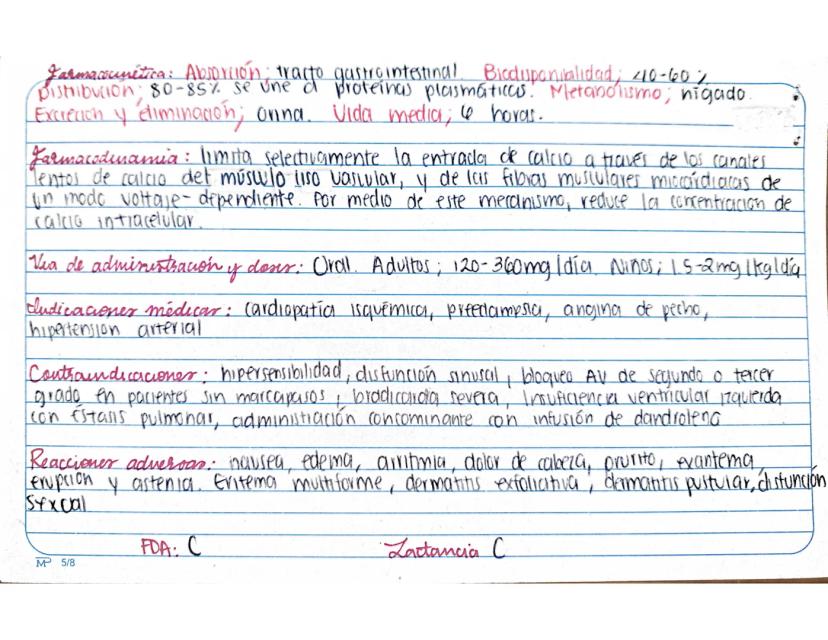 Farmacocinética: Absorción; tracto gastrointestinal. Biodisponibilidad; 40-60%
Distribución; 80-85% se une a proteínas plasmáticas. Metabolismo; hígado.
Excreción y eliminación; Orina. Vida media; 6 horas.
Farmacodinamia: limita selectivamente la entrada de calcio a través de los canales
lentos de calcio del músculo liso vascular, y de las fibras musculares miocárdiacas de
un modo voltaje-dependiente. Por medio de este mecanismo, reduce la concentración de
calcio intracelular.
Via de administración y dosis: Oral. Adultos; 120-360mg/día. Niños; 1.5-2mg/kg/día
Indicaciones médicas: Cardiopatía isquémica, preeclampsia, angina de pecho,
hipertensión arterial
Contraindicaciones: hipersensibilidad, disfunción sinusal, bloqueo AV de segundo o tercer
grado en pacientes sin marcapasos, bradicardia severa, Insuficiencia ventricular izquierda
con Éstasis pulmonar, administración concominante con infusión de dandroleno
Reacciones adversas: nausea, edema, arritmia, dolor de cabeza, prurito, exantema,
erupción y astenia. Eritema multiforme, dermatitis exfoliativa, dermatitis pustular, disfunción
sexual
FDA: C Lactancia C
MP 5/8